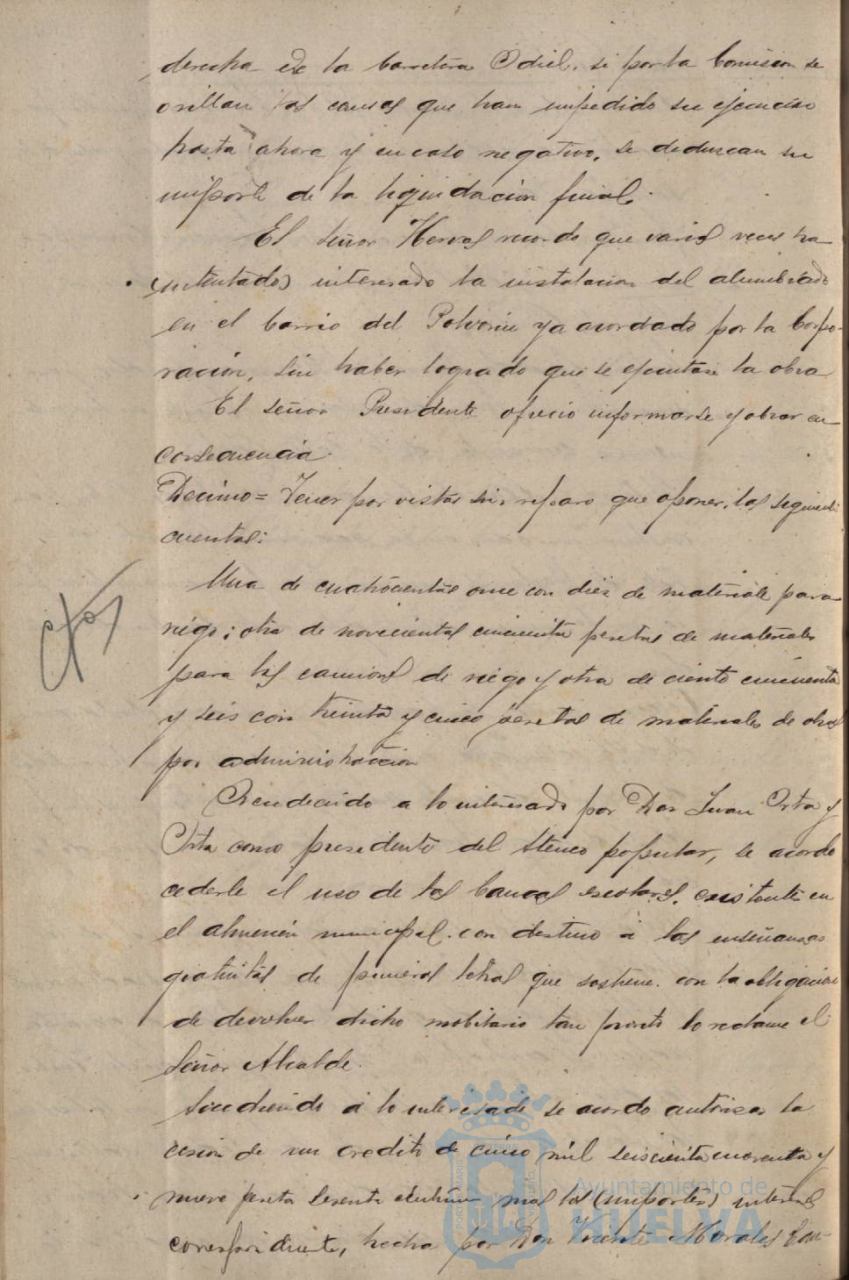 derecha de la carretera Odiel, si por la Comision se
orillan las causas que han impedido su ejecucion
hasta ahora y en caso negativo, se deduzcan su
importe de la liquidacion final.
El señor Hervas recordo que varias veces ha
(intentado) interesado la instalacion del alumbrado
en el barrio del Polvorin ya acordado por la Corpo-
ración, sin haber logrado que se ejecutase la obra
El señor Presidente ofrecio informarse y obrar en
consecuencia.
Decimo = Tener por vistas sin reparo que oponer, las siguientes
cuentas:
Una de cuatrocientas once con diez de materiales para
riego; otra de novecientas cincuenta pesetas de materiales
para los camiones de riego y otra de ciento cincuenta
y seis con treinta y cinco pesetas de materiales de obras
por administracion
Ctas
Accediendo a lo interesado por Don Juan Orta y
Orta como presidente del Ateneo popular, se acordo
cederle el uso de los bancos escolares existentes en
el almacén municipal con destino a las enseñanzas
gratuitas de primeras letras que sostiene con la obligacion
de devolver dicho mobiliario tan pronto lo reclame el
Señor Alcalde.
Accediendo a lo interesado se acordo autorizar la
cesion de un credito de cinco mil seiscientas cuarenta y
nueve pesetas sesenta centimos mas los (importes) intereses
correspondientes, hecha por Don Vicente Morales
Ayuntamiento de
HUELVA